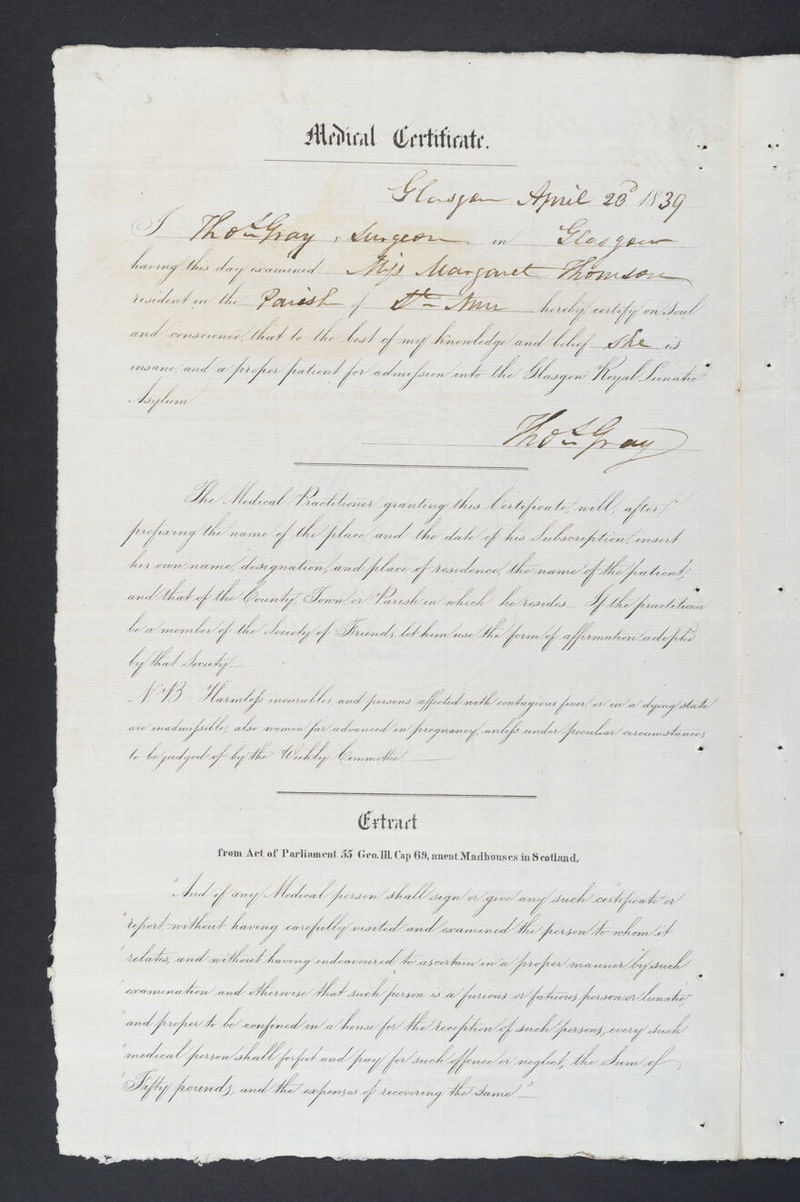 Medical Certificate.
Glasgow April 23d 1839
I Thos Gray, Surgeon in Glasgow
having this day examined Miss Margaret Thomson
resident in the Parish of St Ann hereby certify on Soul
and conscience, that to the best of my knowledge and belief she is
insane, and a proper patient for admission into the Glasgow Royal Lunatic
Asylum.
Thos Gray
The Medical Practitioner granting this Certificate, will, after
prefixing the name of the place, and the date of his Subscription, insert
his own name, designation, and place of residence, the name of the patient,
and that of the County, Town or Parish in which he resides. If the practitioner
be a member of the Society of Friends, let him use the form of affirmation adopted
by that Society.
N.B. Harmless incurables, and persons affected with contagious fever or in a dying state
are inadmissible; also women far advanced in pregnancy, unless under peculiar circumstances,
to be judged of by the Weekly Committee.
Extract
from Act of Parliament 55 Geo. III. Cap 69, anent Madhouses in Scotland.
"And if any Medical person shall sign or give any such "certificate or
"report without having carefully visited and examined the person to whom it
"relates, and without having endeavoured to ascertain in a proper manner by such
"examination and otherwise that such person is a furious or fatuous person or lunatic,
"and proper to be confined in a house for the reception of such persons, every such
"medical person shall forfeit and pay for such offence or neglect, the Sum of
"Fifty pounds, and the expenses of recovering the same"